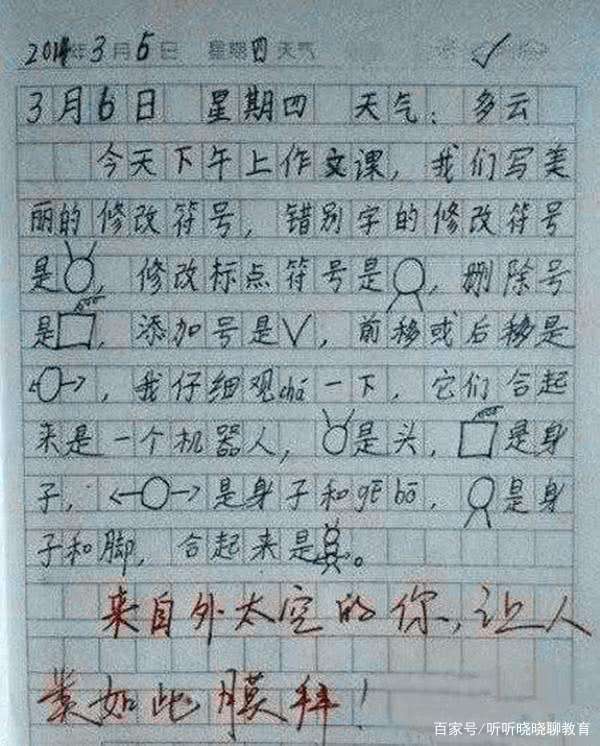 2014年3月6日 星期四 天气
3月6日 星期四 天气:多云
今天下午上作文课,我们写美
丽的修改符号,错别字的修改符号
是,修改标点符号是,删除号
是,添加号是∨,前移或后移是
←○→,我仔细观chá一下,它们合起
来是一个机器人,是头,是身
子,←○→是身子和gē bō,是身
子和脚,合起来是。
来自外太空的你,让人
如此膜拜!
百家号/听听晓晓聊教育